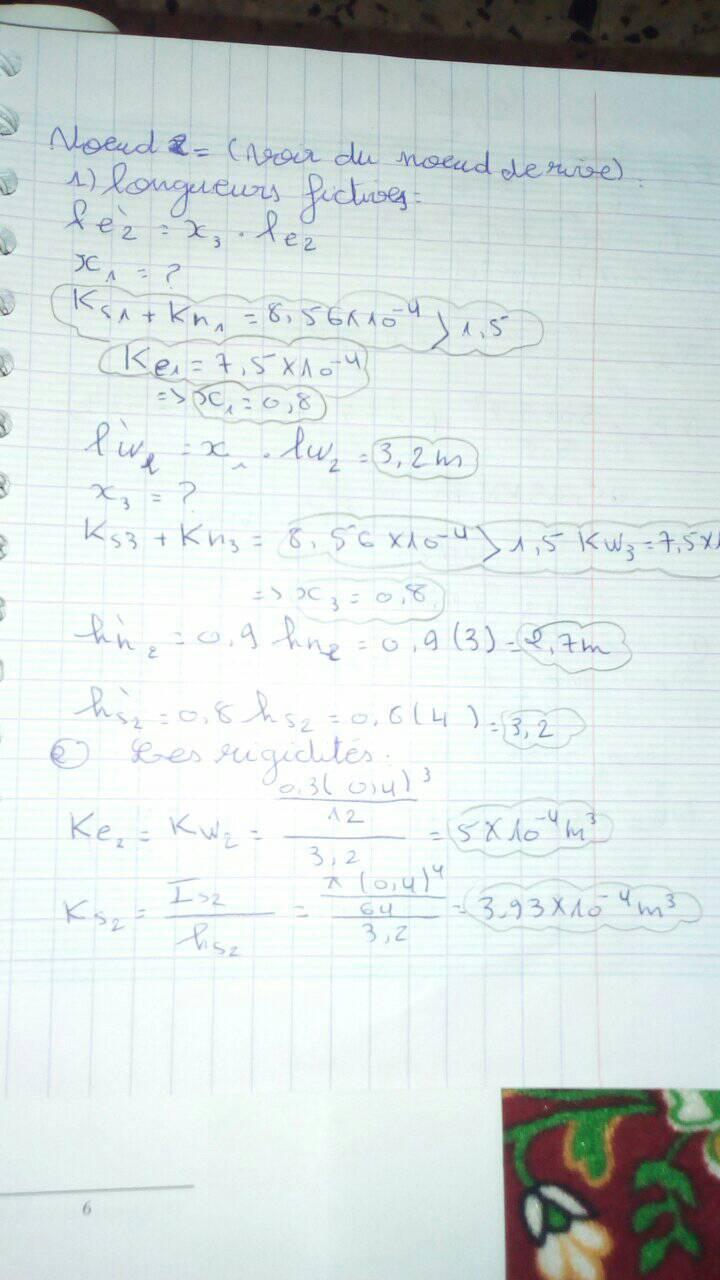 Noeud 2 = (voir du noeud de rive).
1) longueurs fictives:
l'e2 = x3 . le2
x1 = ?
Ks1 + Kn1 = 8,56x10^-4 > 1,5
Ke1 = 7,5x10^-4
=> x1 = 0,8
l'w2 = x1 . lw2 = 3,2m
x3 = ?
Ks3 + Kn3 = 8,56x10^-4 > 1,5 Kw3 = 7,5x1
=> x3 = 0,8
h'n2 = 0,9 hn2 = 0,9(3) = 2,7m
h's2 = 0,8 hs2 = 0,6(4) = 3,2
2 Les rigidités:
Ke2 = Kw2 = (0,3(0,4)^3/12)/3,2 = 5x10^-4 m^3
Ks2 = Is2/hs2 = (π(0,4)^4/64)/3,2 = 3,93x10^-4 m^3
6